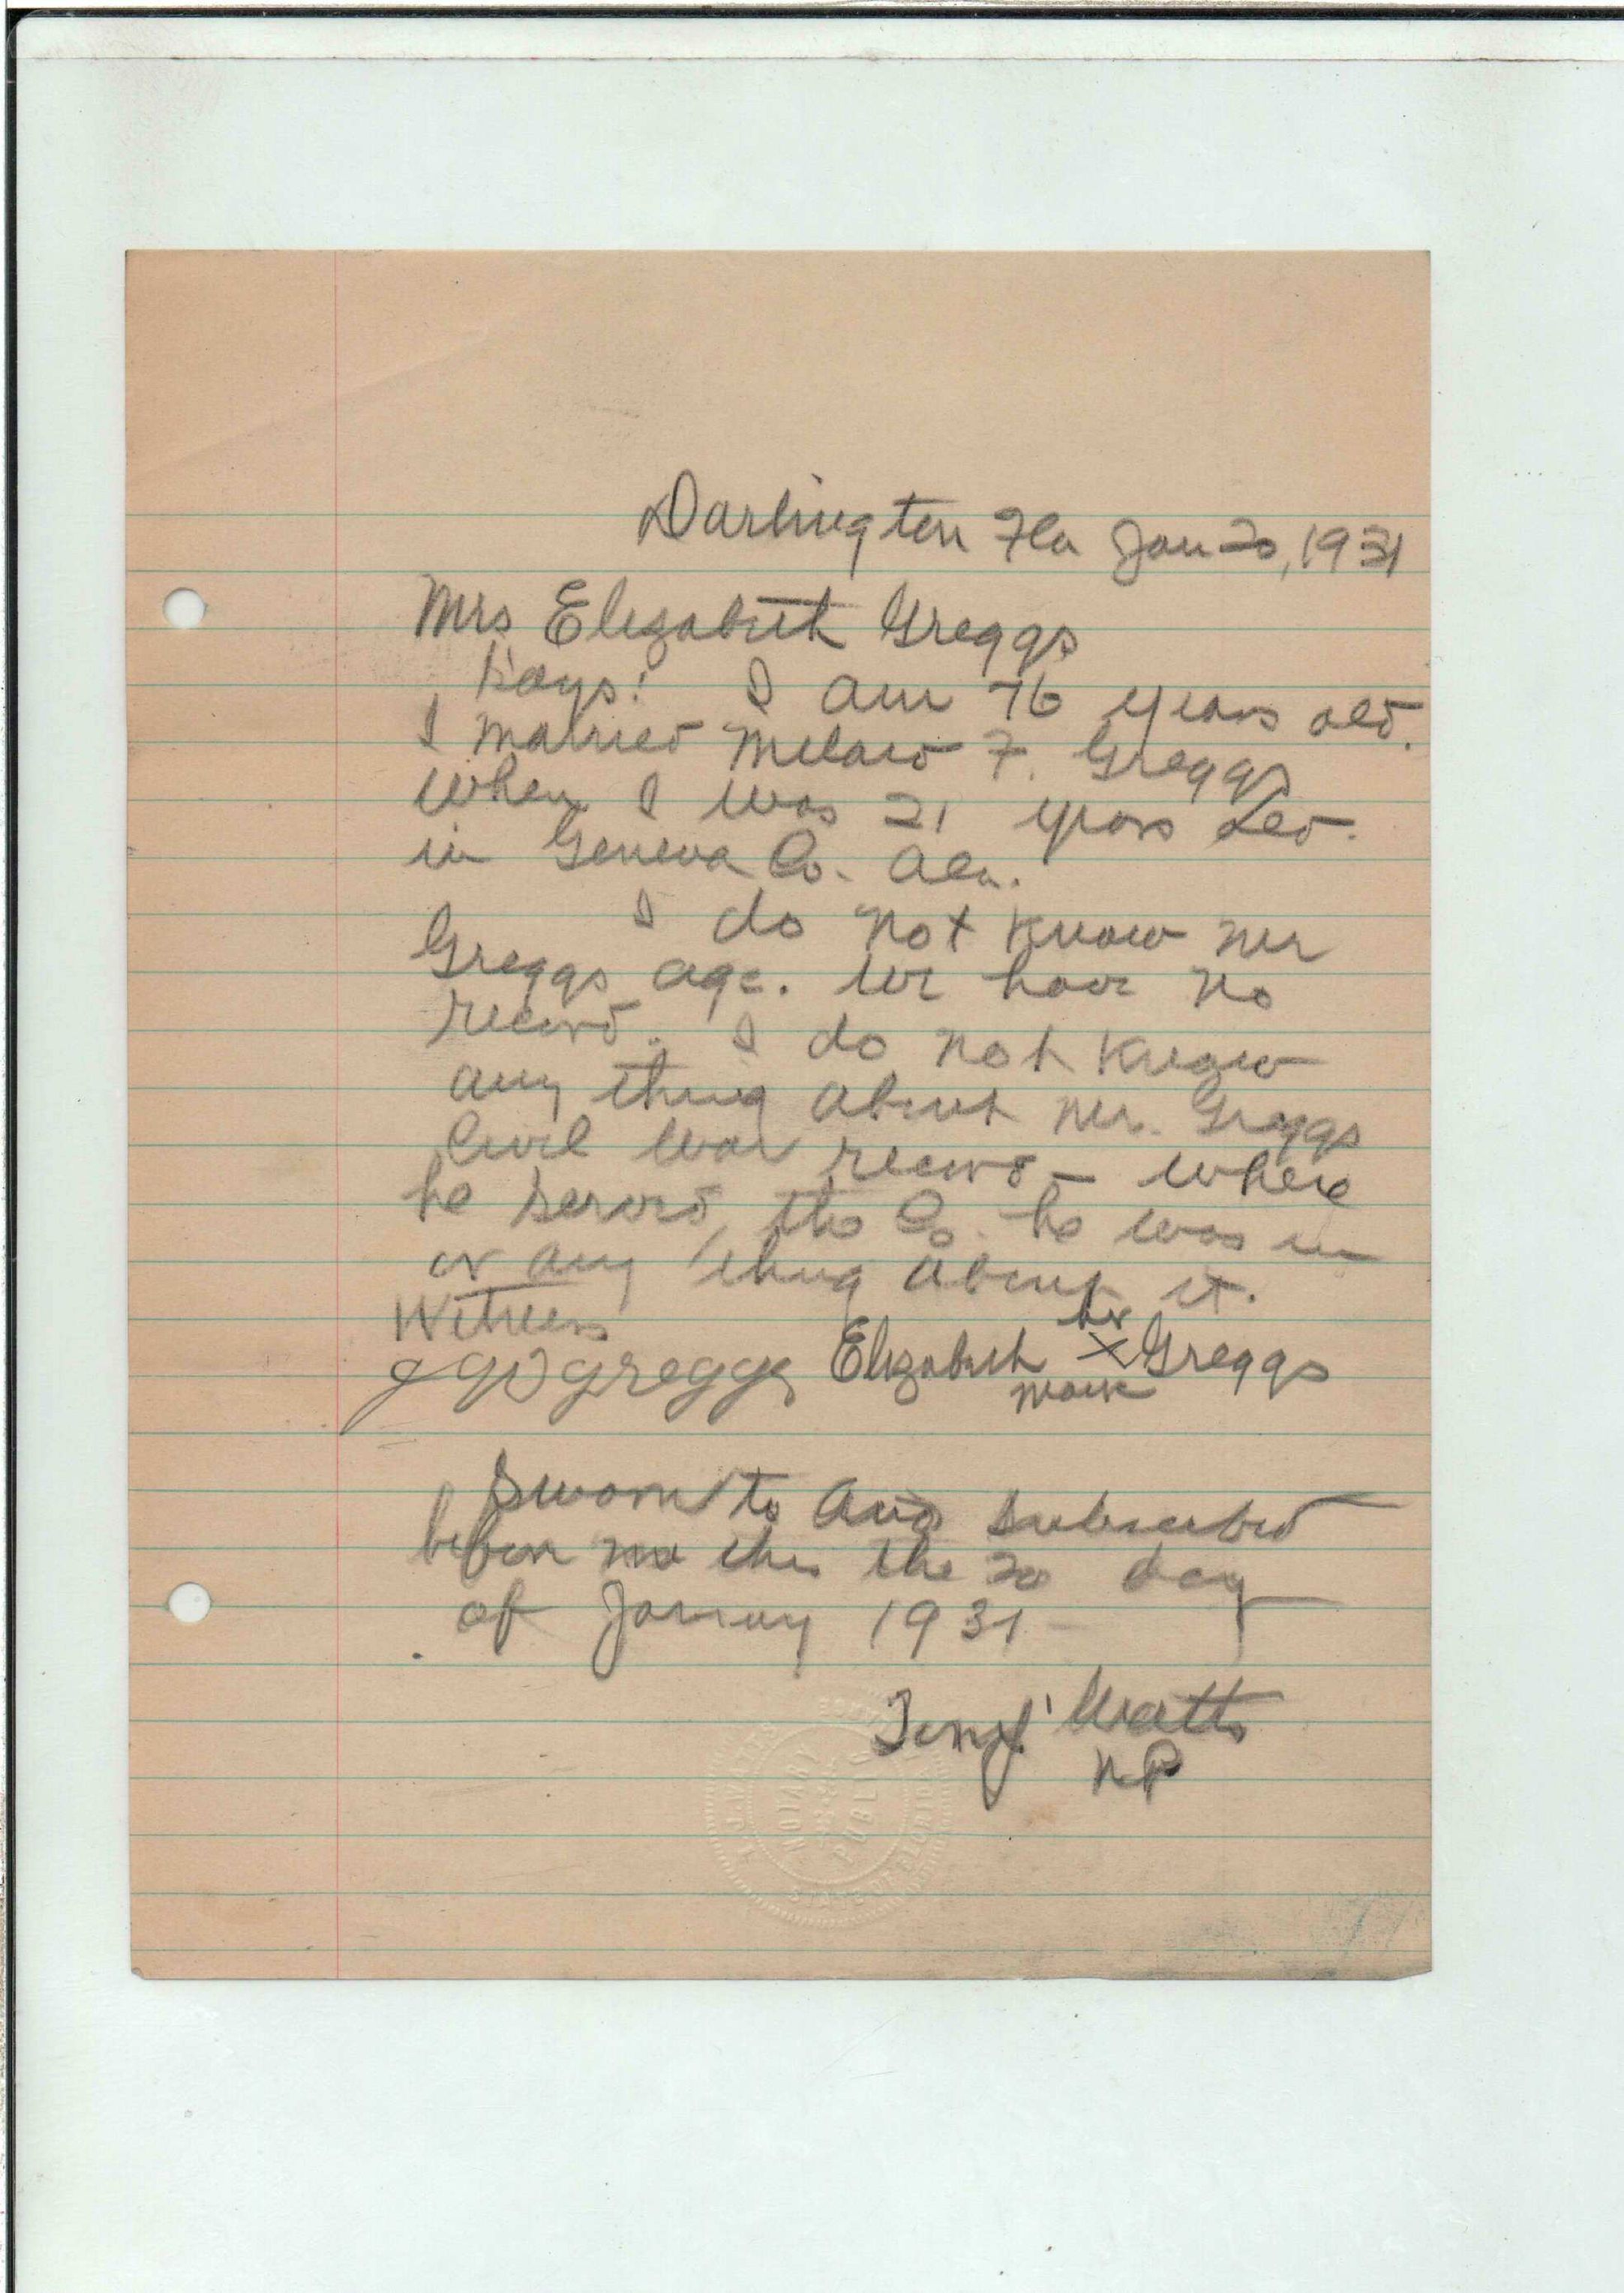 Darlington Fla Jan 20, 1931
Mrs Elizabeth Greggs
Says: I am 76 years old.
I married F. Greggs
When I was 21 years old.
in Geneva Co. Ala.
I do not know Mr
Greggs age. We have no
record. I do not know
any thing about Mr. Greggs
Civil War record – where
he served, the Co. he was in
or any thing about it.
Witness
Greggs Elizabeth her X mark Greggs
Sworn to and subscribed
before me this the 20 day
of January 1931
Watts
NP
NOTARY PUBLIC
STATE OF FLORIDA